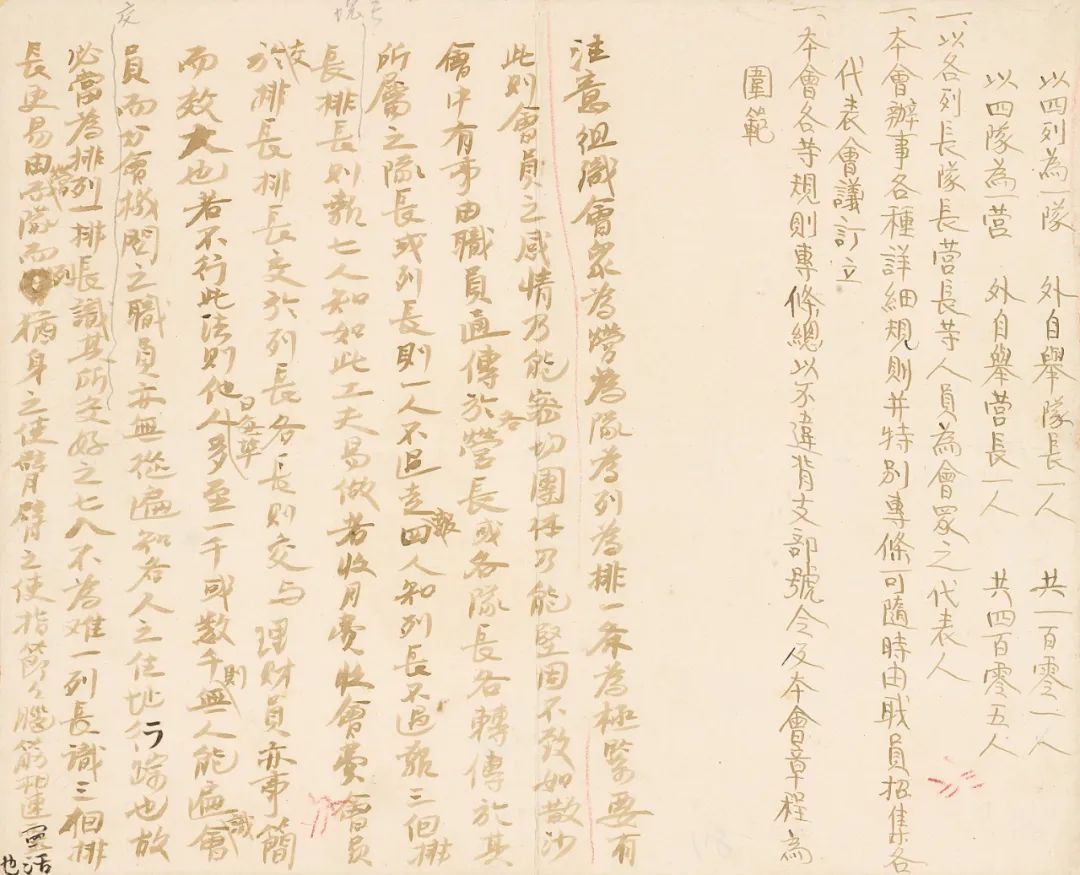 以四列為一隊　外自舉隊長一人　共一百零一人
以四隊為一營　外自舉營長一人　共四百零五人
一、以各列長隊長营長等人員為會眾之代表人
一、本會辦事各種詳細規則并特別專條可隨時由職員招集各
代表會議訂立
一、本會各等規則專條總以不違背支部號令及本會章程為
圍範
注意組織會眾為營為隊為列為排一条為極緊要有
此則會員之感情乃能密切團体乃能堅固不致如散沙
會中有事由職員通傳於各營長或各隊長各轉傳於其
所屬之隊長或列長則一人不過走報四人知列長不過報三個排
長排長則報七人知如此工夫易做若收月費收會費會員
交於排長排長交於列長各長則交与理財員亦事簡
而效大也若不行此法則他日每埠人多至一千或數千則無人能遍識會
員而分會機関之職員亦無從遍知各人之住址行踪也故
必當為排列一排長識其所交好之七人不為难一列長識三個排
長更易由營而隊而列猶身之使臂臂之使指節々腦筋靈活
也